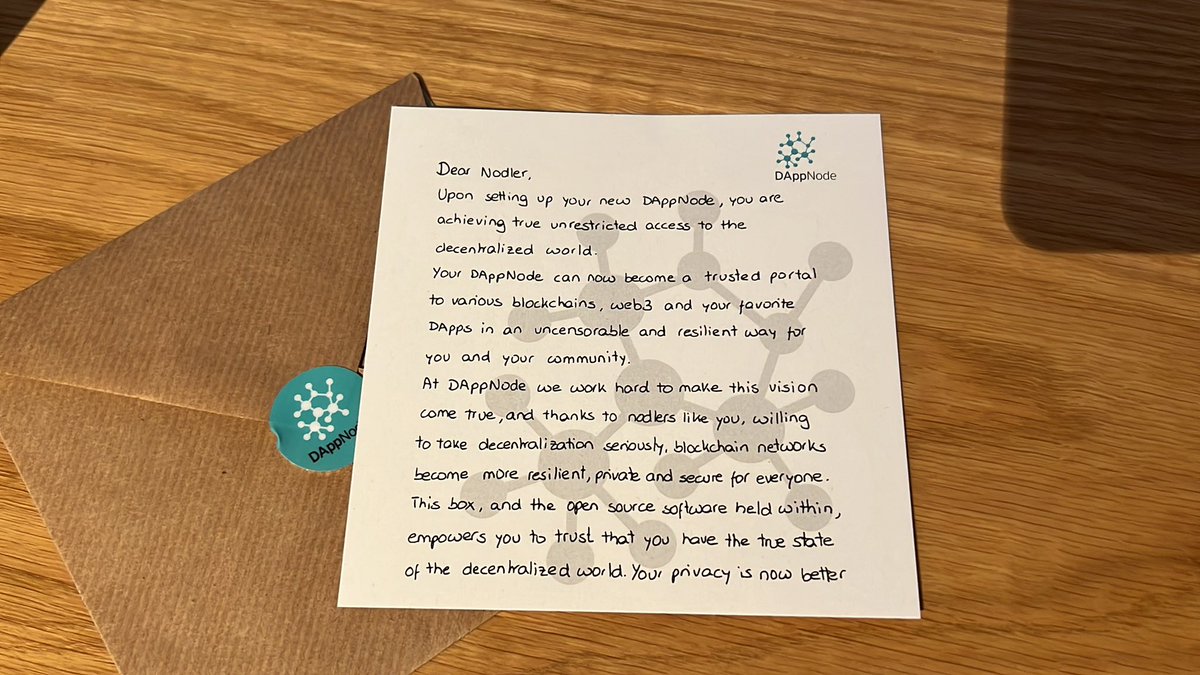 DAppNode
Dear Nodler,
Upon setting up your new DAppNode, you are
achieving true unrestricted access to the
decentralized world.
Your DAppNode can now become a trusted portal
to various blockchains, web3 and your favorite
DApps in an uncensorable and resilient way for
you and your community.
At DAppNode we work hard to make this vision
come true, and thanks to nodlers like you, willing
to take decentralization seriously, blockchain networks
become more resilient, private and secure for everyone.
This box, and the open source software held within,
empowers you to trust that you have the true state
of the decentralized world. Your privacy is now better
DAppNo